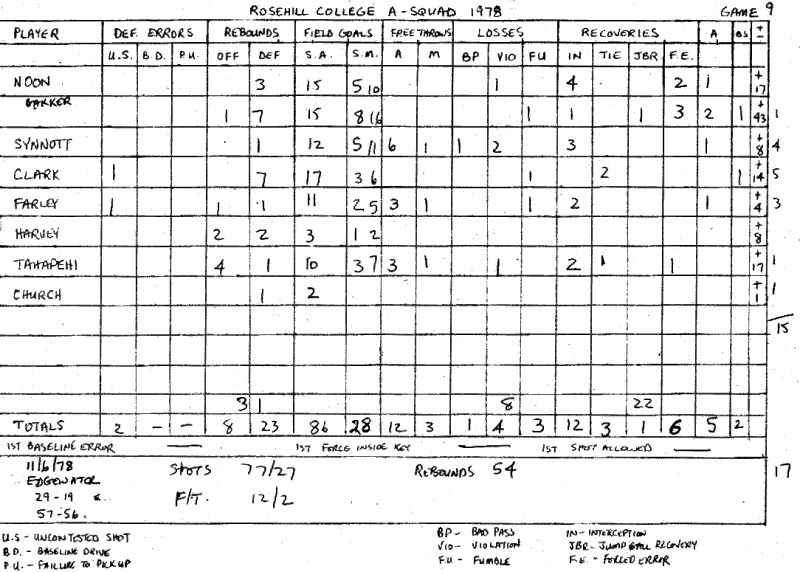 ROSEHILL COLLEGE A-SQUAD 1978 GAME 9
PLAYER DEF. ERRORS REBOUNDS FIELD GOALS FREETHROWS LOSSES RECOVERIES A BS + -
U.S. B.D. P.U. OFF DEF S.A. S.M. A M BP VIO FU IN TIE JBR F.E.
NOON 3 15 5 10 1 4 2 1 +17
BARKER 1 7 15 8 16 1 1 1 3 2 1 +43 1
SYNNOTT 1 12 5 11 6 1 1 2 3 1 +8 4
CLARK 1 7 17 3 6 1 2 1 +14 5
FARLEY 1 1 1 11 2 5 3 1 1 2 1 +4 3
HARVEY 2 2 3 1 2 +8
TAHAPEHI 4 1 10 3 7 3 1 1 2 1 1 +17 1
CHURCH 1 2 +1 1
15
31 8 22
TOTALS 2 - - 8 23 86 28 12 3 1 4 3 12 3 1 6 5 2
1ST BASELINE ERROR — 1ST FORCE INSIDE KEY — 1ST SHOT ALLOWED —
11/6/78 SHOTS 77/27 REBOUNDS 54 17
EDGEWATER
29-19 F/T. 12/2
57-56.
U.S - UNCONTESTED SHOT BP - BAD PASS IN - INTERCEPTION
B.D. - BASELINE DRIVE VIO - VIOLATION JBR - JUMP BALL RECOVERY
P.U. - FAILURE TO PICK UP FU - FUMBLE F.E. - FORCED ERROR